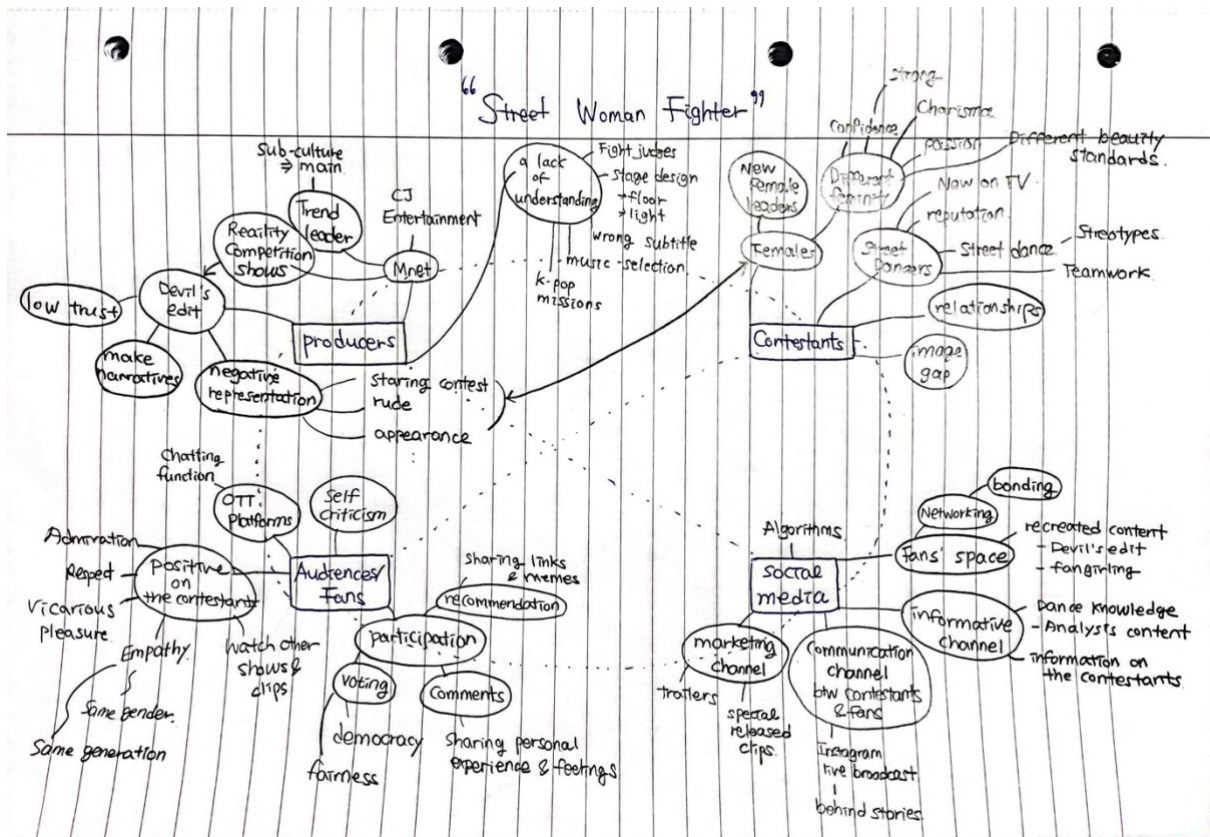 "Street Woman Fighter"
Sub-culture
⇒ main.
Trend
leader
CJ
Entertainment
Reaility
Competition
shows
Mnet
Devil's
edit
low trust
make
narratives
producers
negative
representation
staring contest
rude
appearance
a lack
of
understanding
Fight judges
stage design
→ floor
→ light
wrong subtitle
music selection
k-pop
missions
New
female
leaders
Females
Different
Strong
Confidence
Charisma
passion
Different beauity
standards.
Street
Dancers
Now on TV
reputation
Street dance
Streotypes.
Teamwork
Contestants
relationships
image
gap
Chatting
function
OTT
Platforms
Self
Criticism
Audiences/
Fans
positive
on
the contestants
Admiration
Respect
Vicarious
pleasure
Empathy
Same gender.
Same generation
Watch other
shows &
clips
participation
Sharing links
& memes
recommendation
Voting
democracy
fairness
Comments
Sharing personal
experience & feelings
Algorithms
social
media
Fans' space
Networking
bonding
recreated content
- Devil's edit
- fangirling
informative
channel
Dance knowledge
- Analysis content
information on
the contestants
marketing
channel
trailers
special
released
clips.
Communication
channel
btw contestants
& fans
Instagram
live broadcast
behind stories.